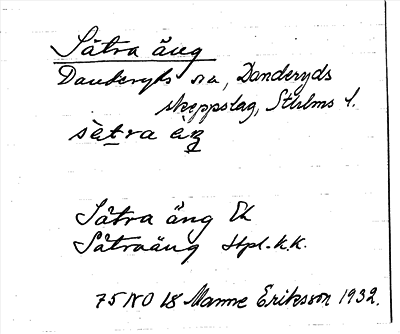 Sätra äng
Danderyds sn, Danderyds
skeppslag, Sthlms l.
sàt̲ra ä̀ŋ
Sätra äng Ek
Sätraäng Hpl. k.k.
75 NO 18 Manne Eriksson 1932.